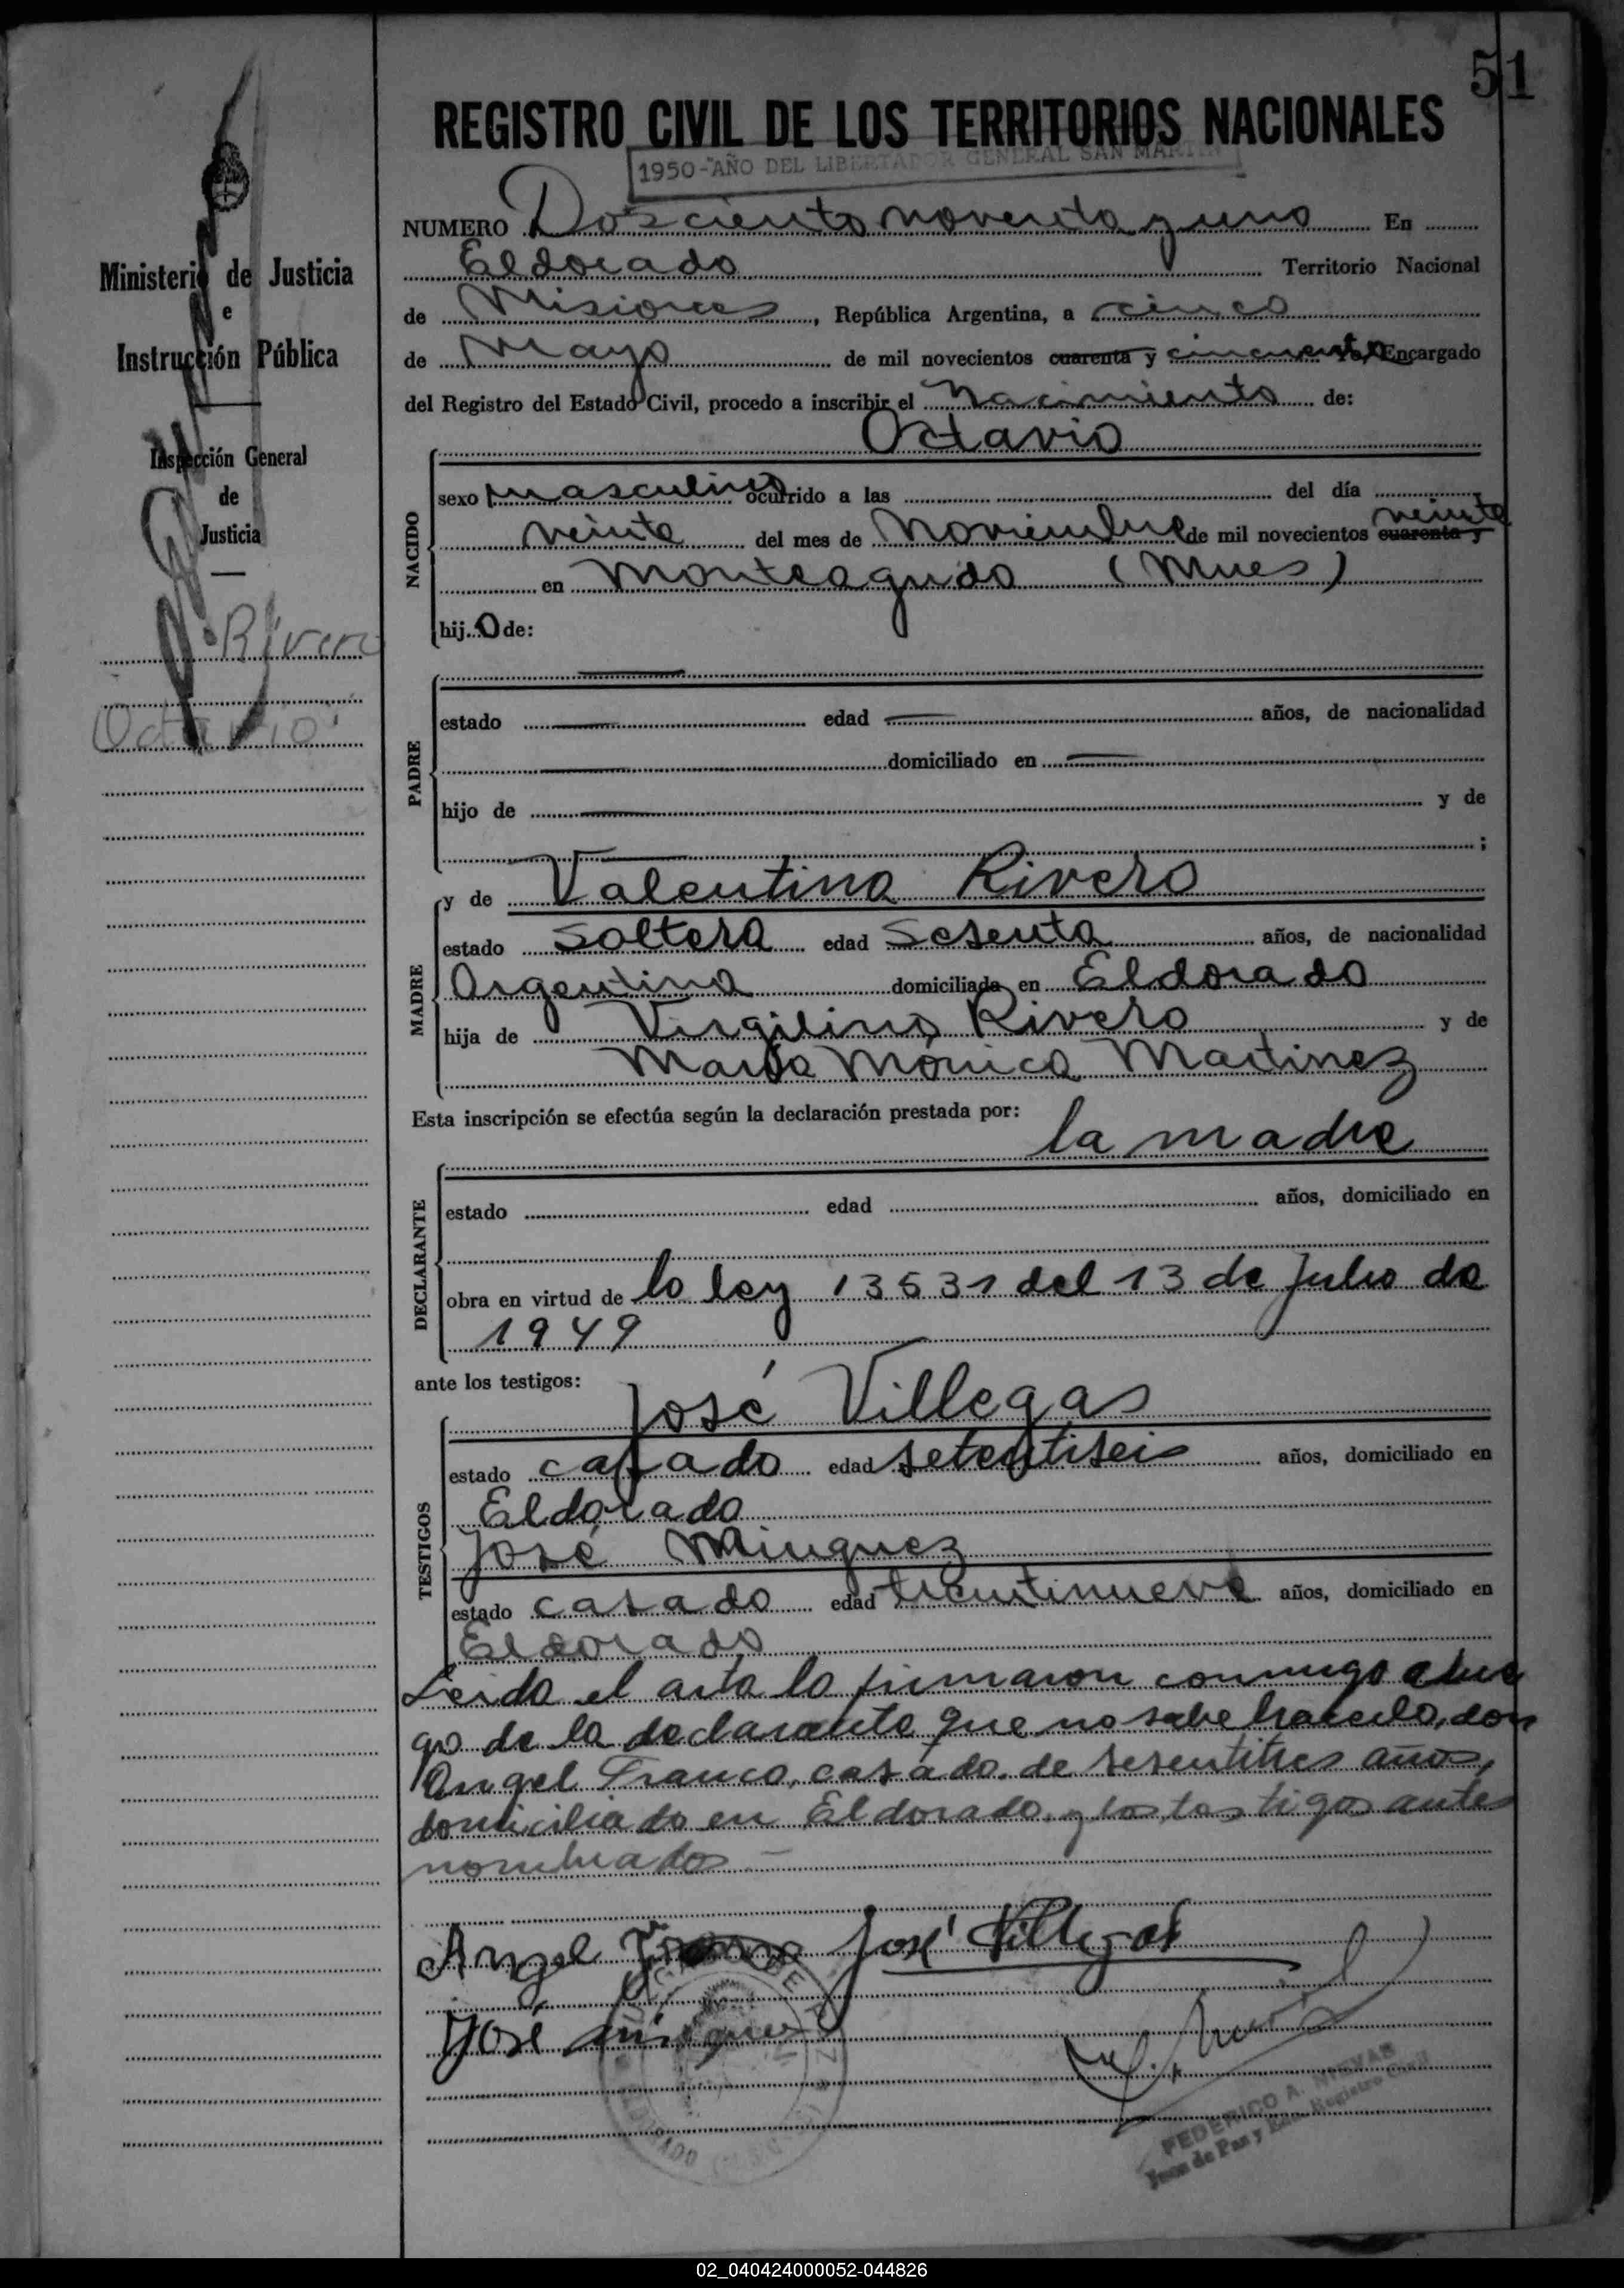 51
REGISTRO CIVIL DE LOS TERRITORIOS NACIONALES
1950-AÑO DEL LIBERTADOR GENERAL SAN MARTIN
NUMERO Dosciento noventa y uno En
Eldorado Territorio Nacional
de Misiones, República Argentina, a cinco
de Mayo de mil novecientos cuarenta y cincuenta, Encargado
del Registro del Estado Civil, procedo a inscribir el Nacimiento de:
Octavio
NACIDO
sexo masculino ocurrido a las del día
veinte del mes de Noviembre de mil novecientos cuarenta y veinte
en Monteagudo (Mnes)
hijo de:
PADRE
estado edad años, de nacionalidad
domiciliado en
hijo de y de
;
MADRE
y de Valentina Rivero
estado Soltera edad Sesenta años, de nacionalidad
Argentina domiciliada en Eldorado
hija de Virgilino Rivero y de
María Mónica Martinez
Esta inscripción se efectúa según la declaración prestada por:
la madre
DECLARANTE
estado edad años, domiciliado en
obra en virtud de la ley 13531 del 13 de Julio de
1949
ante los testigos:
TESTIGOS
José Villegas
estado casado edad setentiseis años, domiciliado en
Eldorado
José Minguez
estado casado edad treintinueve años, domiciliado en
Eldorado
Leida el acta la firmaron conmigo a rue
go de la declarante que no sabe hacerlo, don
Angel Franco, casado de sesentitres años,
domiciliado en Eldorado y los testigos antes
nombrados
Angel Franco José Villegas
José Minguez
FEDERICO A.
Juez de Paz y Enc. Registro Civil
Ministerio de Justicia
e
Instrucción Pública
Inspección General
de
Justicia
Rivero
Octavio
02_040424000052-044826